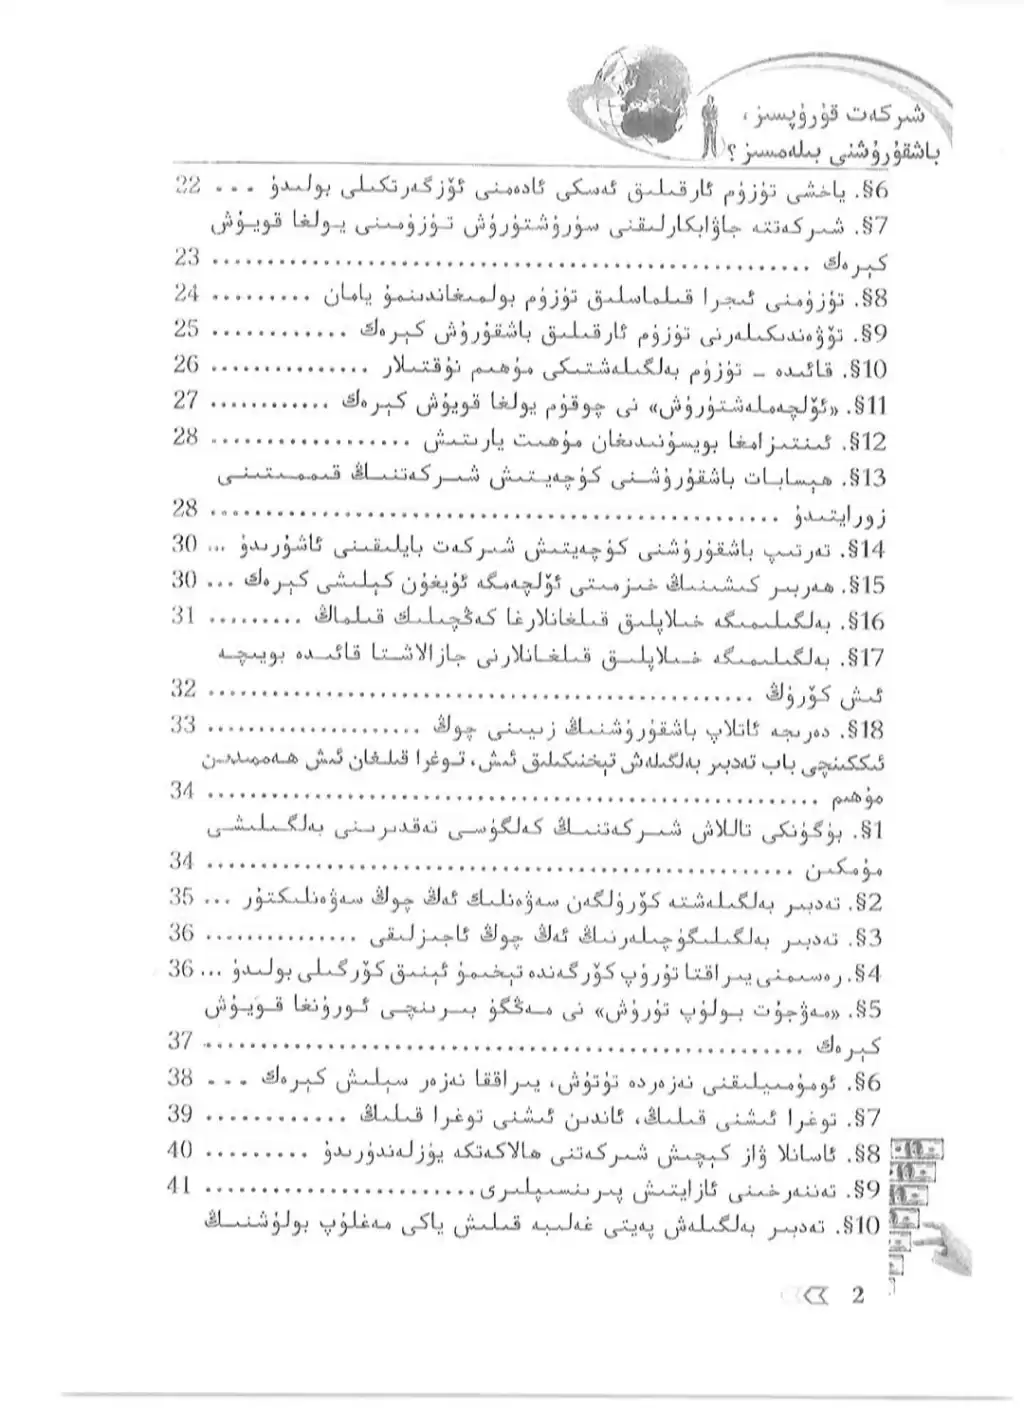 شىركەت قۇرۇپسىز،
باشقۇرۇشنى بىلەمسىز؟
§6. ياخشى تۈزۈم ئارقىلىق ئەسكى ئادەمنى ئۆزگەرتكىلى بولىدۇ ... 22
§7. شىركەتتە جاۋابكارلىقنى سۈرۈشتۈرۈش تۈزۈمىنى يولغا قويۇش
كېرەك ........................................................ 23
§8. تۈزۈمنى ئىجرا قىلماسلىق تۈزۈم بولمىغاندىنمۇ يامان ......... 24
§9. تۆۋەندىكىلەرنى تۈزۈم ئارقىلىق باشقۇرۇش كېرەك ............ 25
§10. قائىدە - تۈزۈم بەلگىلەشتىكى مۇھىم نۇقتىلار ............... 26
§11. «ئۆلچەملەشتۈرۈش» نى چوقۇم يولغا قويۇش كېرەك ........... 27
§12. ئىنتىزامغا بويسۇنىدىغان مۇھىت يارىتىش .................. 28
§13. ھېسابات باشقۇرۇشنى كۈچەيتىش شىركەتنىڭ قىممىتىنى
زورايتىدۇ ..................................................... 28
§14. تەرتىپ باشقۇرۇشنى كۈچەيتىش شىركەت بايلىقىنى ئاشۇرىدۇ ... 30
§15. ھەربىر كىشىنىڭ خىزمىتى ئۆلچەمگە ئۇيغۇن كېلىشى كېرەك ... 30
§16. بەلگىلىمىگە خىلاپلىق قىلغانلارغا كەڭچىلىك قىلماڭ ......... 31
§17. بەلگىلىمىگە خىلاپلىق قىلغانلارنى جازالاشتا قائىدە بويىچە
ئىش كۆرۈڭ .................................................. 32
§18. دەرىجە ئاتلاپ باشقۇرۇشنىڭ زىيىنى چوڭ .................... 33
ئىككىنچى باب تەدبىر بەلگىلەش تېخنىكىلىق ئىش، توغرا قىلغان ئىش ھەممىدىن
مۇھىم ....................................................... 34
§1. بۈگۈنكى تاللاش شىركەتنىڭ كەلگۈسى تەقدىرىنى بەلگىلىشى
مۇمكىن ...................................................... 34
§2. تەدبىر بەلگىلەشتە كۆرۈلگەن سەۋەنلىك ئەڭ چوڭ سەۋەنلىكتۇر ... 35
§3. تەدبىر بەلگىلىگۈچىلەرنىڭ ئەڭ چوڭ ئاجىزلىقى .............. 36
§4. رەسىمنى يىراقتا تۇرۇپ كۆرگەندە تېخىمۇ ئېنىق كۆرگىلى بولىدۇ ... 36
§5. «مەۋجۇت بولۇپ تۇرۇش» نى مەڭگۈ بىرىنچى ئورۇنغا قويۇش
كېرەك ........................................................ 37
§6. ئومۇمىيلىقنى نەزەردە تۇتۇش، يىراققا نەزەر سېلىش كېرەك ... 38
§7. توغرا ئىشنى قىلىڭ، ئاندىن ئىشنى توغرا قىلىڭ ............. 39
§8. ئاسانلا ۋاز كېچىش شىركەتنى ھالاكەتكە يۈزلەندۈرىدۇ ......... 40
§9. تەننەرخىنى ئازايتىش پىرىنسىپلىرى ......................... 41
§10. تەدبىر بەلگىلەش پەيتى غەلىبە قىلىش ياكى مەغلۇپ بولۇشنىڭ
2